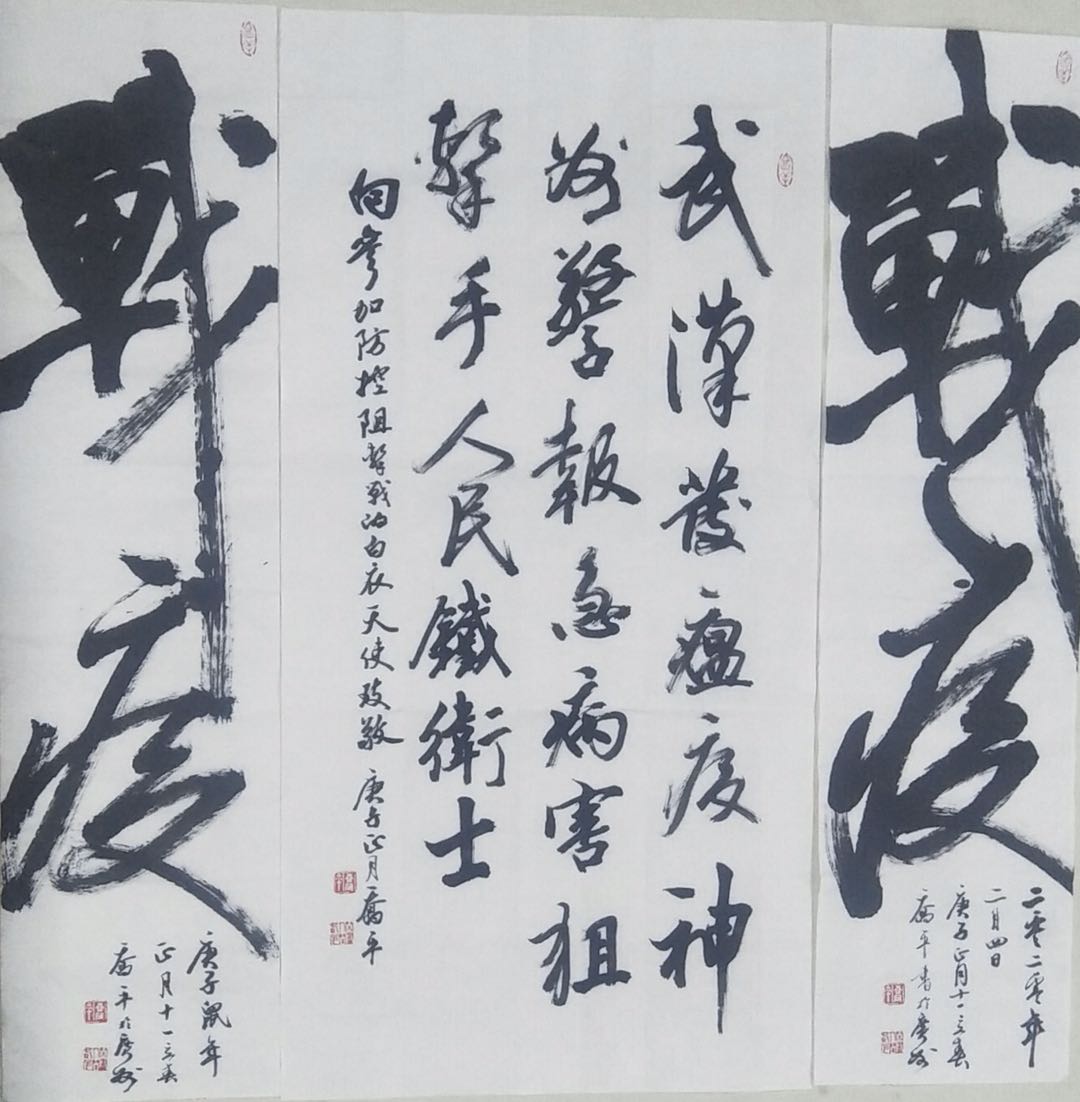 戰疫
二零二零年
二月四日
庚子正月十一立春
喬平書於廣州
武漢發瘟疫神
州警報急病害狙
擊手人民鐵衛士
向參加防控阻擊戰的白衣天使致敬 庚子正月喬平
戰疫
庚子鼠年
正月十一立春
喬平於廣州